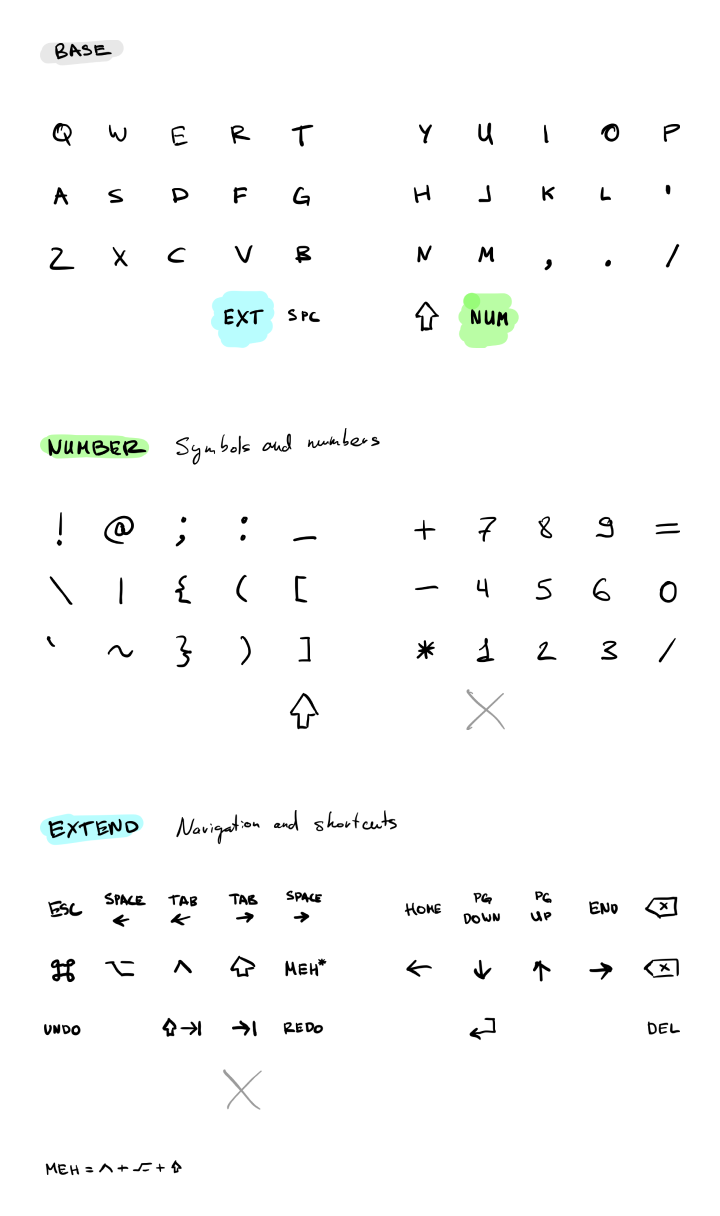 BASE
Q W E R T Y U I O P
A S D F G H J K L '
Z X C V B N M , . /
EXT SPC ⇧ NUM
NUMBER Symbols and numbers
! @ ; : _ + 7 8 9 =
\ | { ( [ - 4 5 6 0
` ~ } ) ] * 1 2 3 /
⇧
EXTEND Navigation and shortcuts
ESC SPACE ← TAB ← TAB → SPACE → HOME PG DOWN PG UP END ⌫
⌘ ⌥ ^ ⇧ MEH* ← ↓ ↑ → ⌫
UNDO ⇧→| →| REDO ↵ DEL
MEH = ^ + ⌥ + ⇧